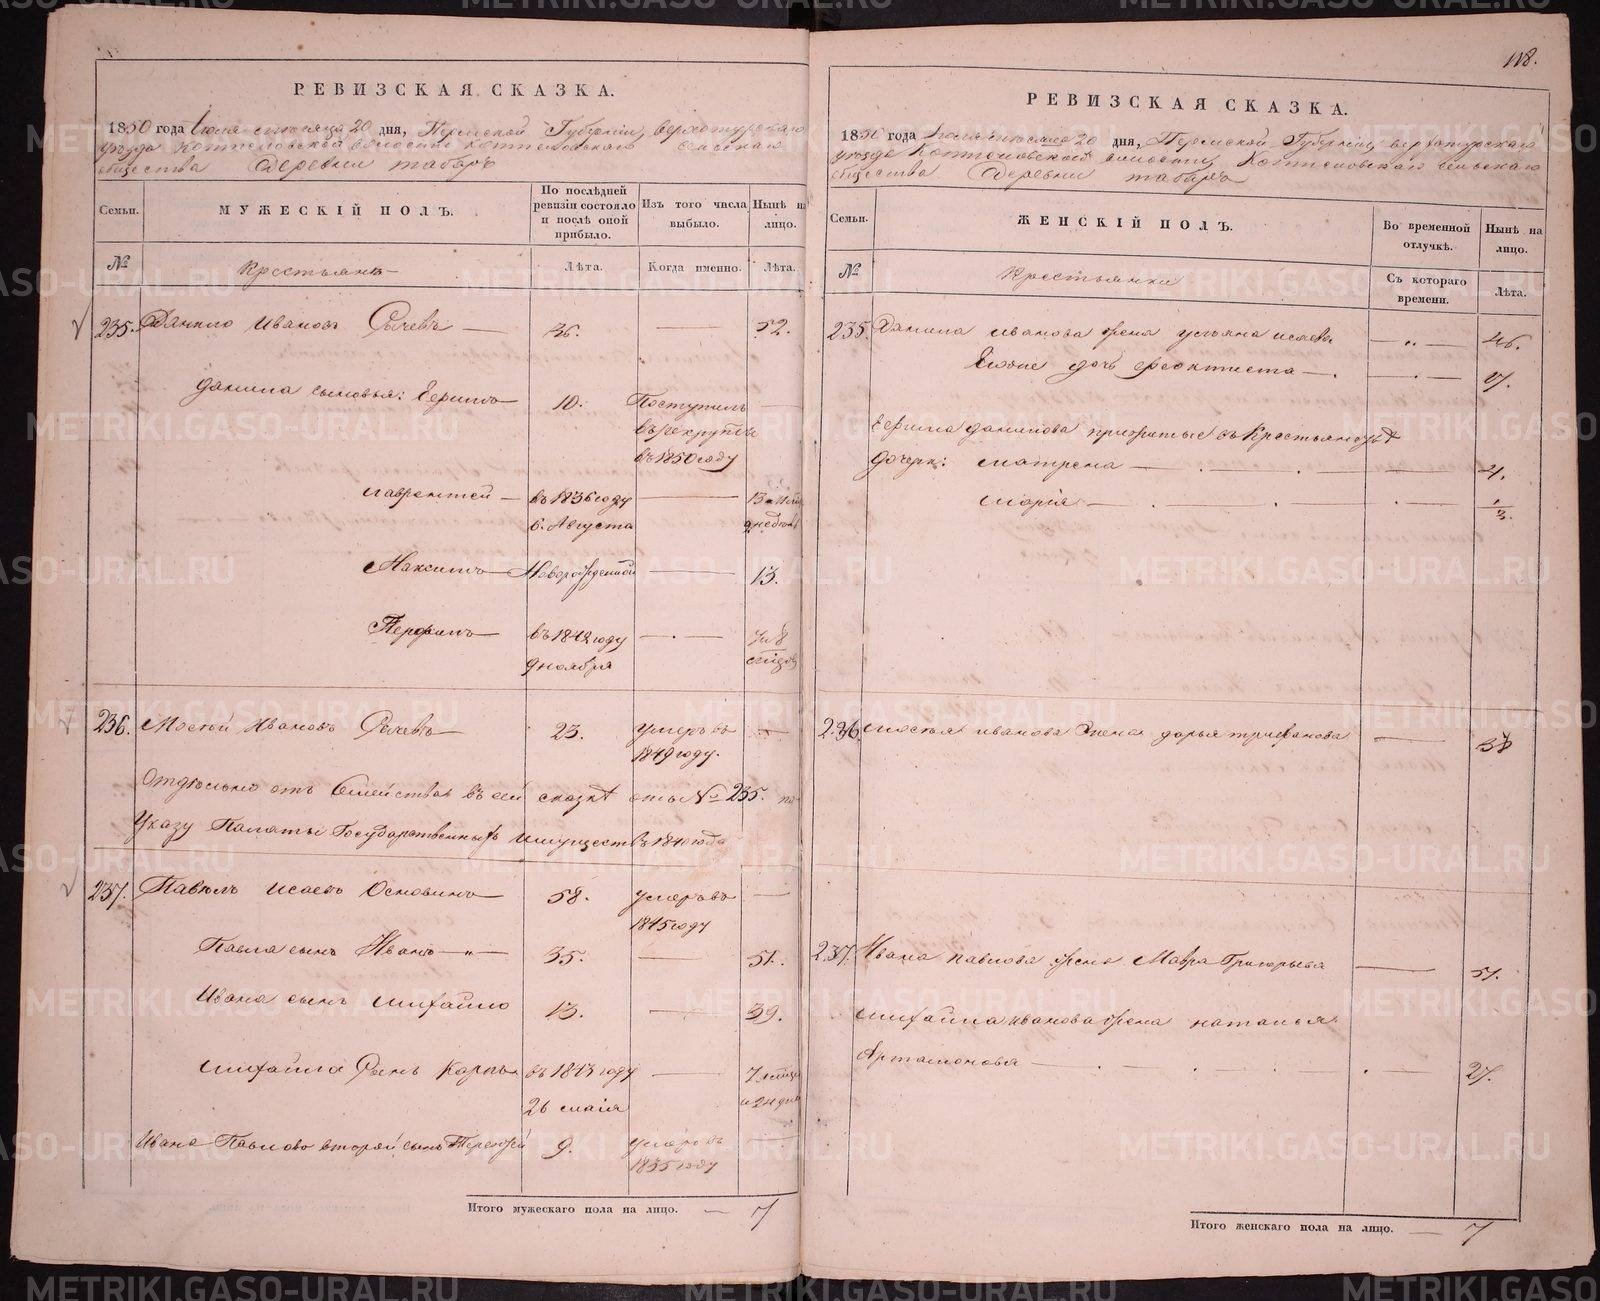 РЕВИЗСКАЯ СКАЗКА.
1850 года Июля месяца 20 дня, Пермской Губернии, верхотурскаго
уезда Коптеловской волости Коптеловскаго сельскаго
общества Деревни таборъ
Семьи.
МУЖЕСКІЙ ПОЛЪ.
По послѣдней ревизіи состояло и послѣ оной прибыло.
Изъ того числа выбыло.
Нынѣ на лицо.
№
Крестьянъ
Лѣта.
Когда именно.
Лѣта.
235. Данило Ивановъ Сычевъ — 36. — 52.
Данила сыновья: Ефимъ 10. Поступилъ
въ рекруты
въ 1850 году
лаврентей — въ 1836 году — 13
6. Августа
Максимъ Новорожденной — 13.
Перфилъ въ 1842 году — 7 и 8
9 ноября
236. Мосѣй Ивановъ Сычевъ 23. умеръ въ —
1849 году.
Отдѣльно отъ Семейства въ сей сказкѣ отъ № 235. по
Указу Палаты Государственныхъ имуществъ 1840 года
237. Павелъ Исаевъ Основинъ 58. умеръ въ —
1845 году
Павла сынъ Иванъ — 35. — 51.
Ивана сынъ михайло 13. — 39.
михайла Сынъ Карпъ въ 1843 году — 7 лѣтъ
26 маія
Ивана Павлова второй сынъ Терентей 9. умеръ въ —
1835 году
Итого мужескаго пола на лицо. — 7
118.
РЕВИЗСКАЯ СКАЗКА.
1850 года Июля месяца 20 дня, Пермской Губернии верхотурскаго
уезда Коптеловской волости Коптеловскаго сельскаго
общества Деревни таборъ
Семьи.
ЖЕНСКІЙ ПОЛЪ.
Во временной отлучкѣ.
Нынѣ на лицо.
№
Крестьянки
Съ котораго времени.
Лѣта.
235. Данила иванова жена ульяна исаева — 46.
дочь феоктиста —
Ефима данилова прижитые въ Крестьянствѣ
дочери: матрена — 4.
марія —
236. мосѣя иванова жена дарья трифанова —
237. Ивана павлова жена Мавра Григорьева — 51.
михайла иванова жена наталья
Артамонова — 27.
Итого женскаго пола на лицо. — 7
METRIKI.GASO-URAL.RU